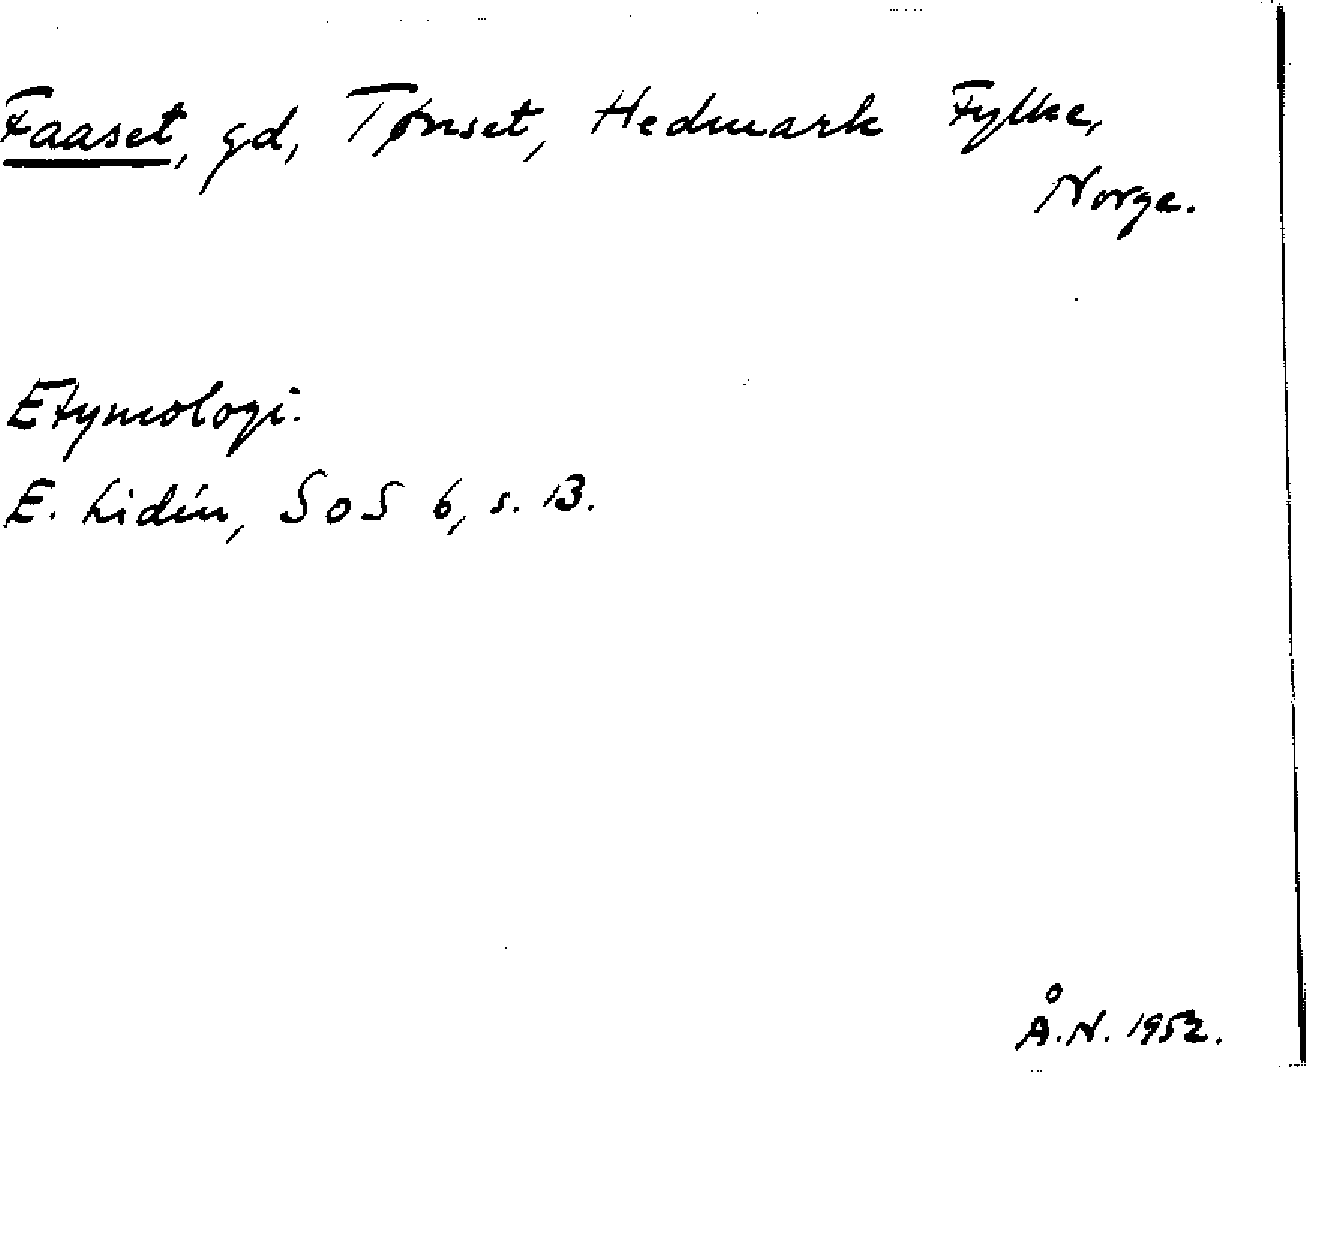 Faaset, gd, Tønset, Hedmark Fylke,
Norge.
Etymologi.
E. Lidén, SoS 6, s. 13.
Å.N. 1952.